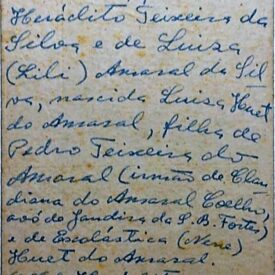 Heráclito Teixeira da
Silva e de Luiza
(Lili) Amaral da Sil
va, nascida Luisa Huet
do Amaral, filha de
Pedro Teixeira do
Amaral (irmão de Clau
diana do Amaral Coelho,
avó de Jandira da S. B. Fortes)
e de Escolástica (Nene)
Huet do Amaral.